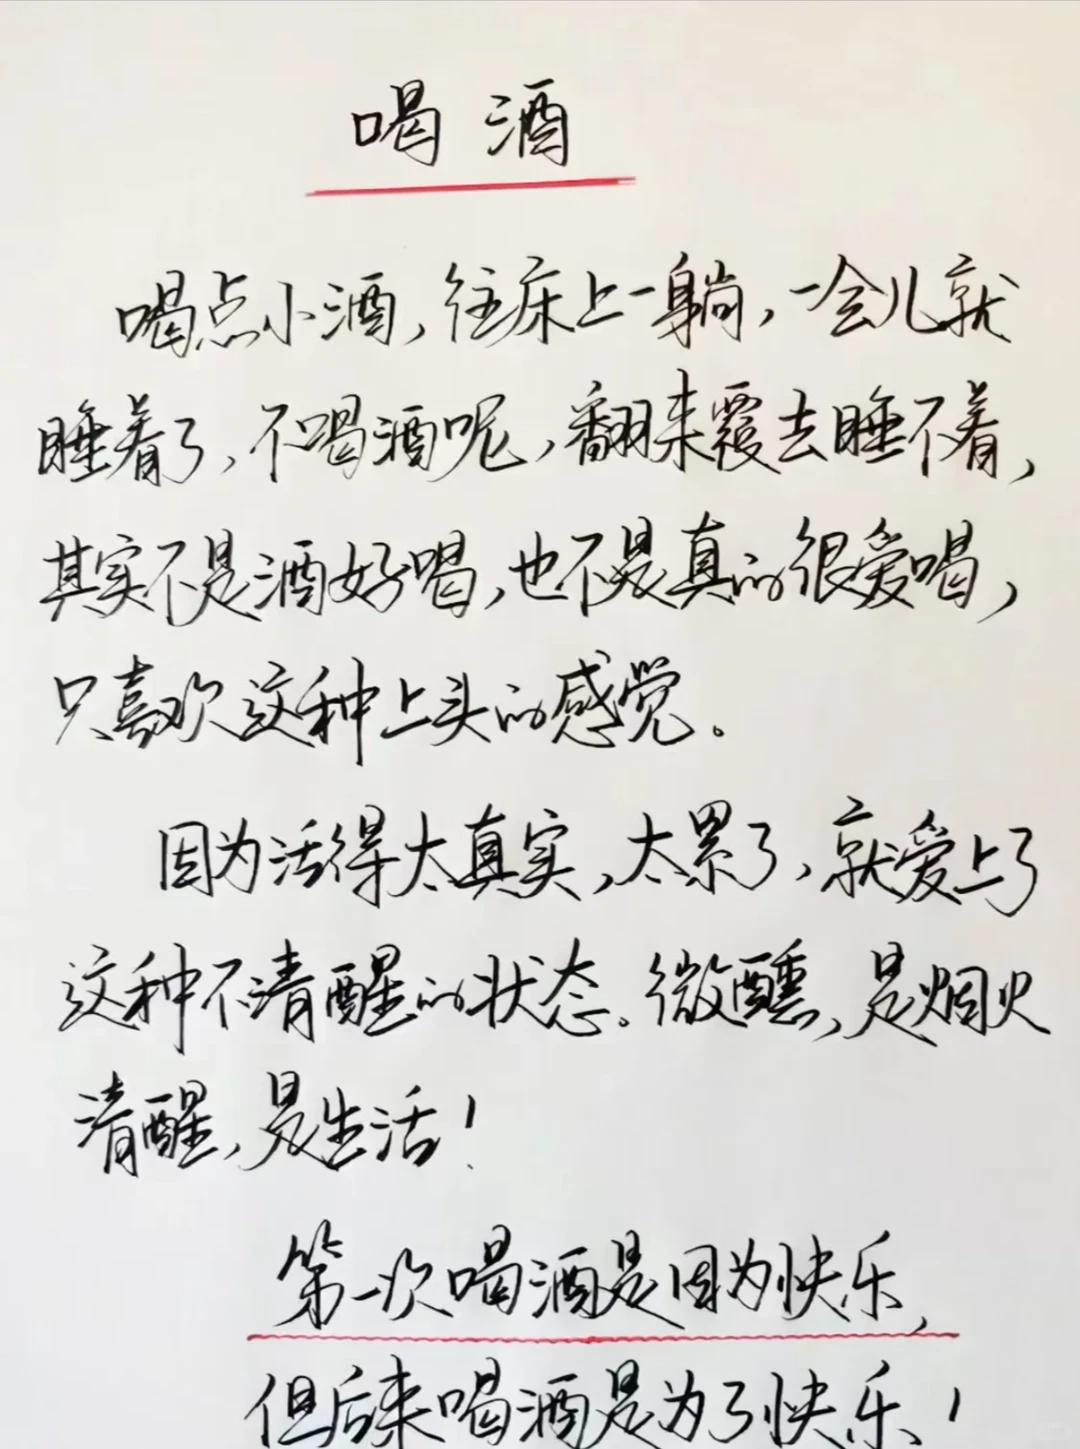 喝酒
喝点小酒,往床上一躺,一会儿就
睡着了,不喝酒呢,翻来覆去睡不着,
其实不是酒好喝,也不是真的很爱喝,
只喜欢这种上头的感觉。
因为活得太真实,太累了,就爱上了
这种不清醒的状态。微醺,是烟火
清醒,是生活!
第一次喝酒是因为快乐,
但后来喝酒是为了快乐!